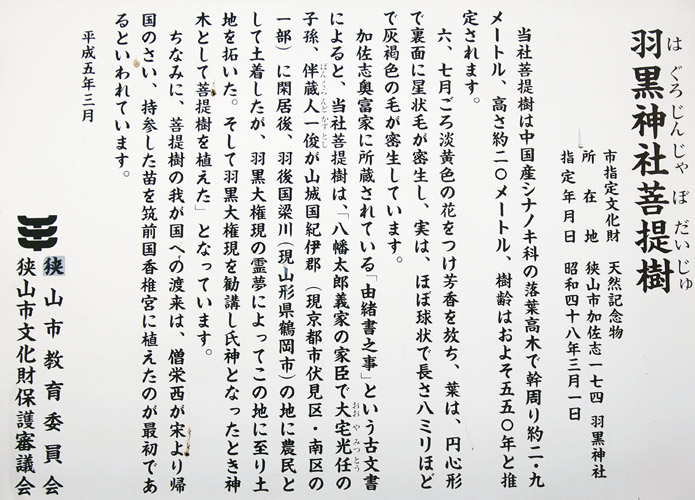 羽黒神社菩提樹
はぐろじんじゃぼだいじゅ
市指定文化財　天然記念物
所在地　狭山市加佐志一七四　羽黒神社
指定年月日　昭和四十八年三月一日
当社菩提樹は中国産シナノキ科の落葉高木で幹周り約二・九
メートル、高さ約二〇メートル、樹齢はおよそ五五〇年と推
定されます。
六、七月ごろ淡黄色の花をつけ芳香を放ち、葉は、円心形
で裏面に星状毛が密生し、実は、ほぼ球状で長さ八ミリほど
で灰褐色の毛が密生しています。
加佐志奥富家に所蔵されている「由緒書之事」という古文書
によると、当社菩提樹は、「八幡太郎義家の家臣で大宅光任の
おおやみつとう
子孫、伴蔵人一俊が山城国紀伊郡（現京都市伏見区・南区の
ばんくらんどかずとし
一部）に閑居後、羽後国梁川（現山形県鶴岡市）の地に農民と
して土着したが、羽黒大権現の霊夢によってこの地に至り土
地を拓いた。そして羽黒大権現を勧請し氏神となったとき神
木として菩提樹を植えた」となっています。
ちなみに、菩提樹の我が国への渡来は、僧栄西が宋より帰
国のさい、持参した苗を筑前国香椎宮に植えたのが最初であ
るといわれています。
平成五年三月
狭山市教育委員会
狭山市文化財保護審議会